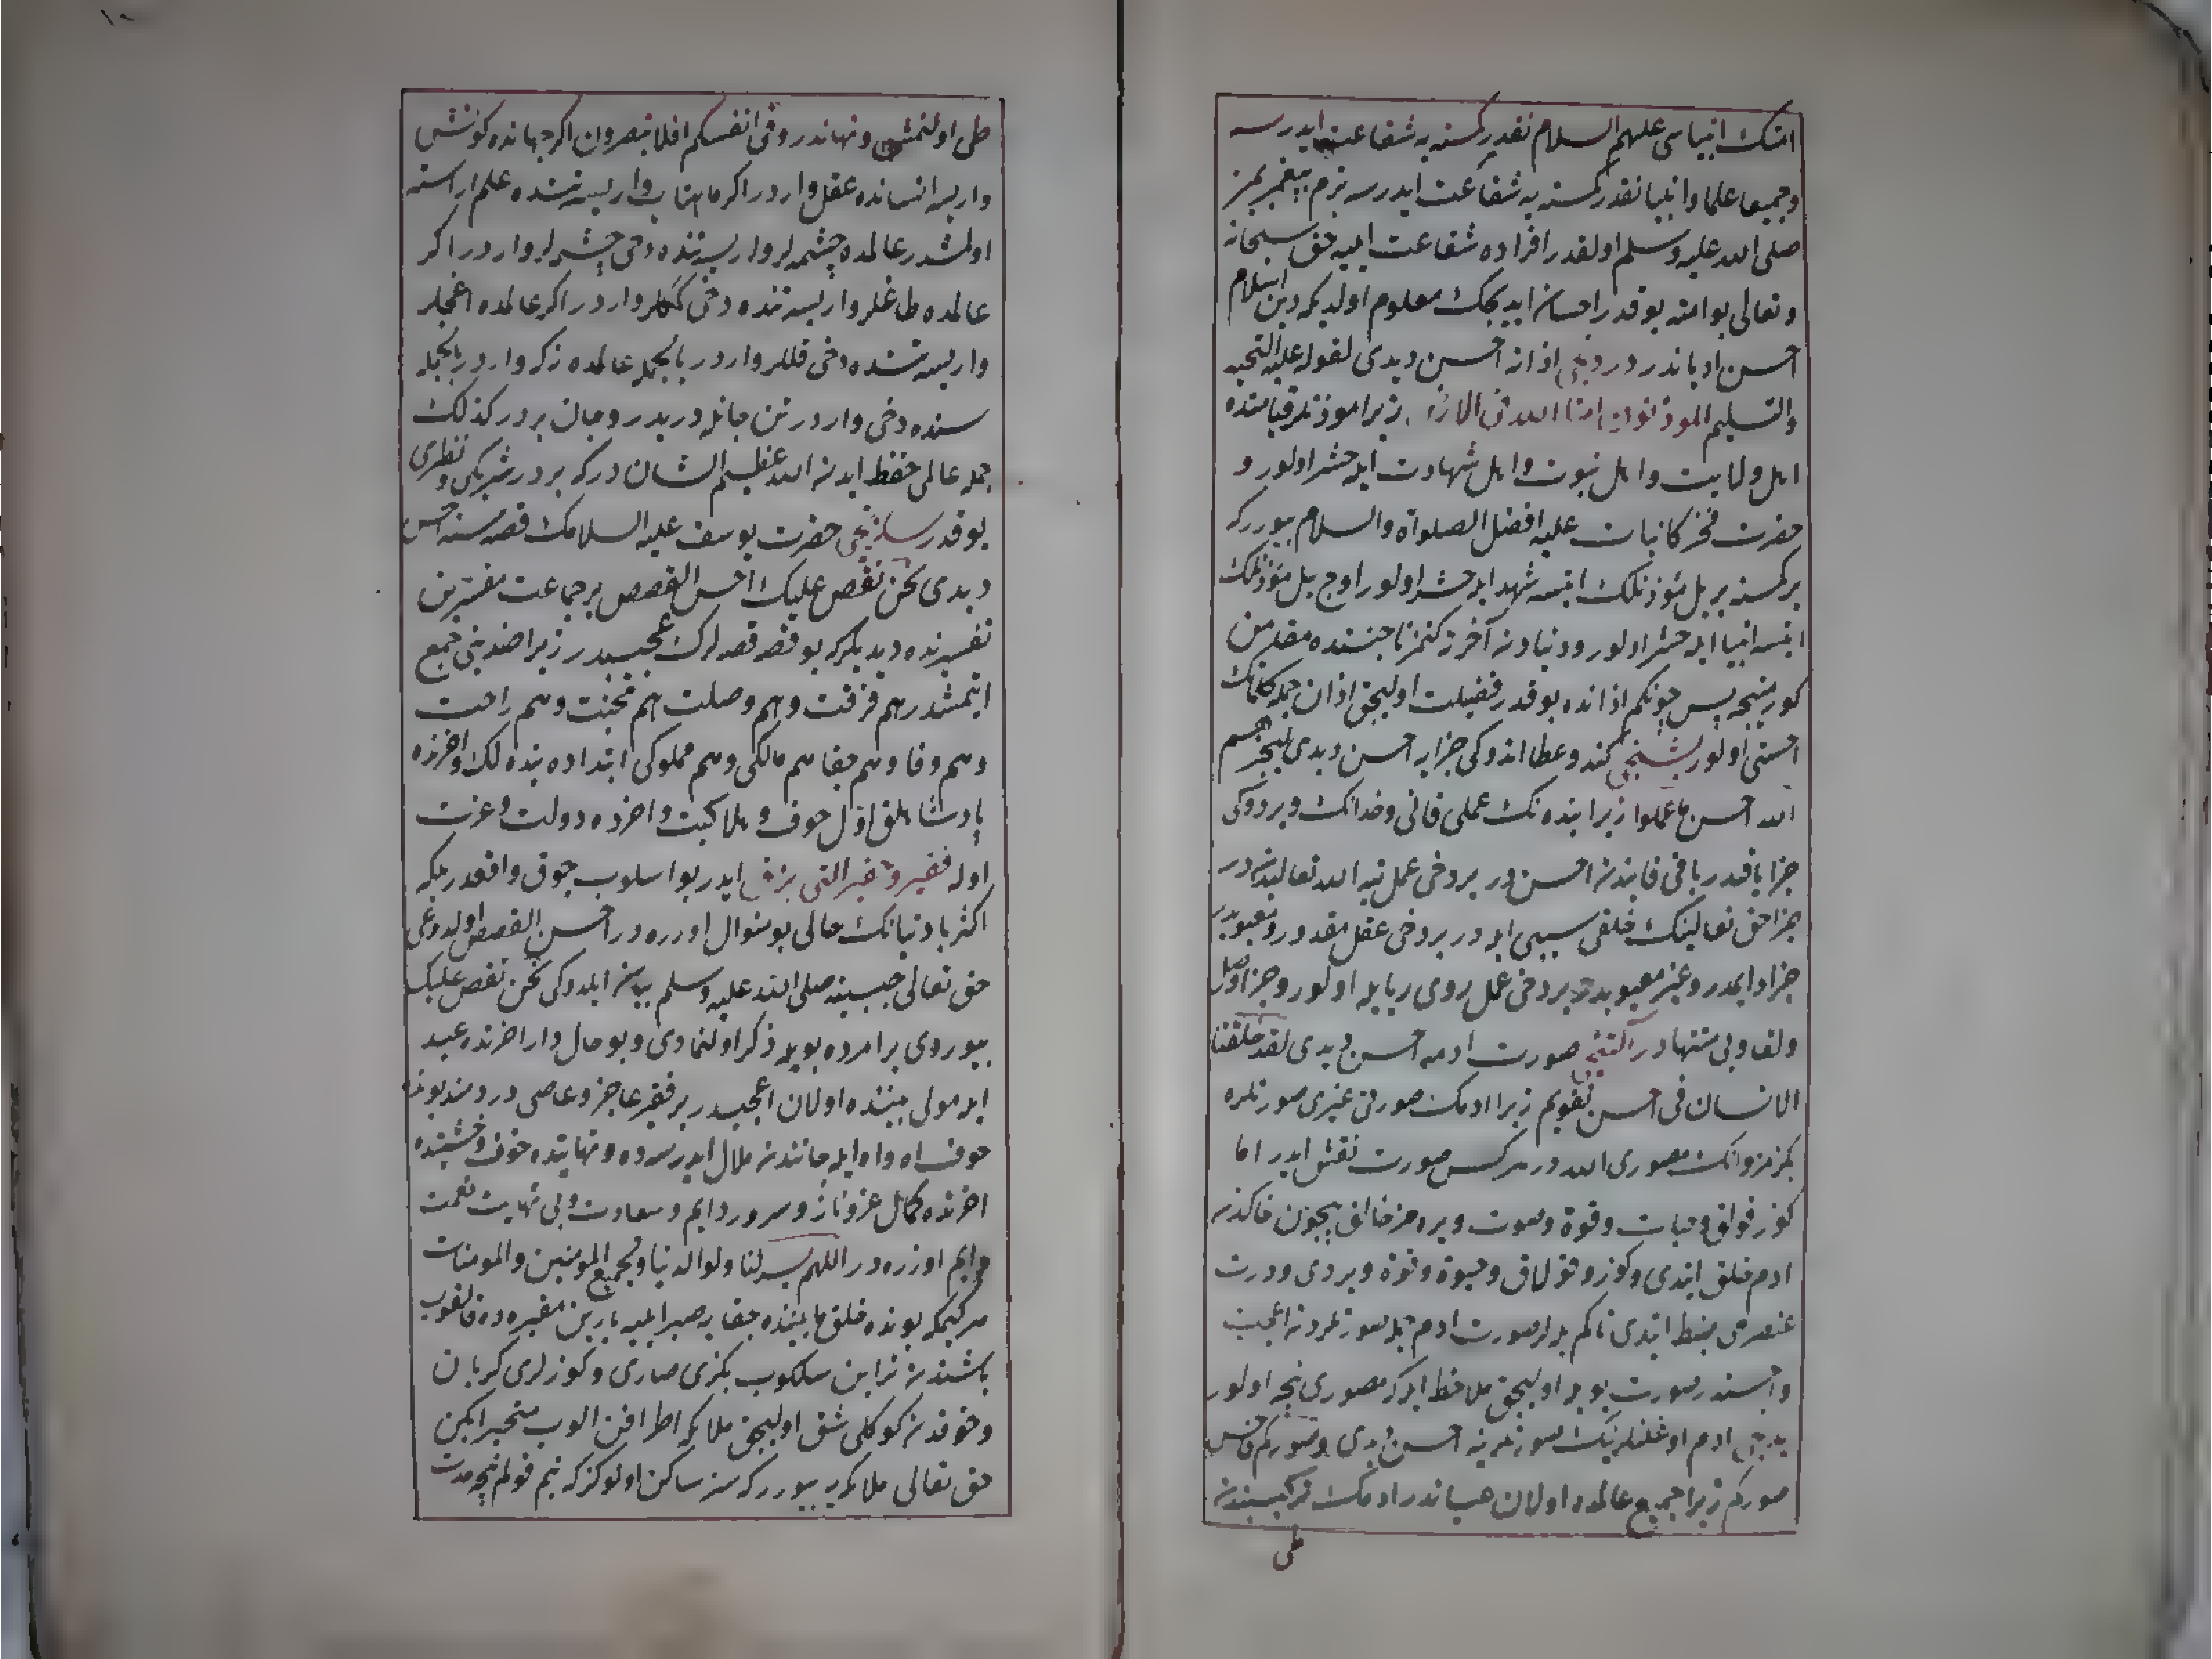 امتك انبياسى عليهم السلام نقدر كسنه يه شفاعت ايدرسه
وجميعا علما وانبيا نقدر كسنه يه شفاعت ايدرسه بزم پيغمبريمز
صلى الله عليه وسلم اولقدر افراده شفاعت ايليه حق سبحانه
وتعالى بو امته بوقدر احسان ايديجك معلوم اولديكه دين اسلام
احسن اديانذر در دخى اذانه احسن ديدى لقوله عليه التحيه
والتسليم الموذنون امنا الله فى الارض زيرا موذنلر قيامتده
اهل ولايت واهل نبوت واهل شهادت ايله حشر اولور و
حضرت فخر كاينات عليه افضل الصلواة والسلام بيورركه
بر كسنه بر يل مؤذنلك ايتسه شهدا ايله حشر اولور اوچ يل مؤذنلك
ايتسه انبيا ايله حشر اولور ودنيادنه آخرته كتمز تا جنتده مقامن
كورمينجه پس چونكم اذانده بوقدر فضيلت اوليجق اذان جمله كلماتك
احسنى اولور بشنجى كندو عطا اندوكى جزايه احسن ديدى ليجزيهم
الله احسن ما عملوا زيرا بنده نك عملى فانى وخدانك ويردوكى
جزا باقيدر باقى فانيدنه احسن در بردخى عمل تيه الله تعاليدندر
جزا حق تعالينك خلقى سببى ايله در بردخى عقل مقدور ومعيوبدر
جزا دايمدر وغير معيوبدر بردخى عمل روى ريايله اولور وجزا وصل
ولقا وبى منتهادر آلتنجى صورت ادمه احسن ديدى لقد خلقنا
الانسان فى احسن تقويم زيرا ادمك صورتى غيرى صورتلره
بكزمز وانك مصورى الله در هركس صورت نقش ايدر اما
كوز قولاق وحيات وقوة وصوت ويره مز خالق بيچون خاكدنه
ادم خلق ايتدى وكوز وقولاق وحيوة وقوة ويردى ودرت
عنصرى ضبط ايتدى تاكم بلالر صورت ادم جمله صورتلردنه اعجب
واحسندر صورت بويله اوليجق ملاحظه ايله كه مصورى نجه اولور
يدنجى ادم اوغلنلرينك صورتلرينه احسن ديدى وصوركم فاحسن
صوركم زيرا جميع عالمده اولان هيباندر ادمك تركيبندنه
طى
طى اولنمش ونهاندر وفى انفسكم افلا تبصرون اكر جهانده كونش
واريسه انسانده عقل واردر اكر ماهتاب واريسه تنده علم اراسته
اولمشدر عالمده چشمه لر واريسه تنده دخى چشمه لر واردر اكر
عالمده طاغلر واريسه تنده دخى كمكلر واردر اكر عالمده اغجلر
واريسه تنده دخى قللر واردر بالجمله عالمده نه كه واردر بالجمله
سنده دخى واردر تن جانله دريدر وجان بردر كذلك
جمله عالمى حفظ ايدنه الله عظيم الشان دركه بردر شريكى ونظرى
يوقدر سكزنجى حضرت يوسف عليه السلامك قصه سنه احسن
ديدى نحن نقص عليك احسن القصص بر جماعت مفسرين
تفسيرنده ديديلركه بو قصه قصه لرك عجبيدر زيرا ضدينى جمع
ايتمشدر هم فرقت وهم وصلت هم محنت وهم راحت
وهم وفا وهم جفا هم مالكى وهم مملوكى ابتداده بنده لك واخرنده
پادشاهلق اول خوف وهلاكيت واخرده دولت وعزت
اوله فقير وحقير التى بزخى ايدر بو اسلوب چوق واقعدر بلكه
اكثر يا دنيانك حالى بو منوال اوزره در احسن القصص اولدوغى
حق تعالى حبيبنه صلى الله عليه وسلم بيان ايلدوكى نحن نقص عليك
بيوردى بر امرده بويله ذكر اولنمادى وبو حال وار اخرنده عبد
ايله مولى بيننده اولان اعجبدر بر فقير عاجز وعاصى دردمند بونده
خوف اه واه ايله جانندنه ملال ايدرسه ده ونهايتده خوف وخشيتده
اخرنده كمال عز وناز وسرور دايم وسعادت وبى نهايت نعمت
دايم اوزره در اللهم يسر لنا ولوالدينا ولجميع المومنين والمومنات
هركيمكه بونده خلق مابيننده جفايه صبر ايليه يارين مقبره ده قالقوب
باشندنه ترابن سلكوب بكزى صارى وكوزلرى كريان
وخوفدنه كوكلى شق اوليجق ملائكه اطرافن الوب متحير ايكن
حق تعالى ملائكه يه بيورركه سز ساكن اولوكز كه بنم قولم نيچه مدت